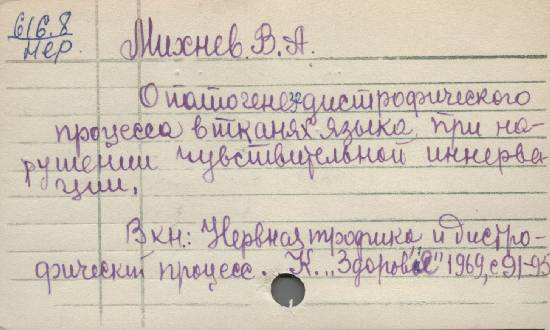 616.8
Нер.
Михнев. В. А.
О патогенезе дистрофического
процесса в тканях языка при на-
рушении чувствительной иннерва-
ции.
В кн.: Нервная трофика и дистро-
фический процесс. К. „Здоровье" 1969, с 91-95